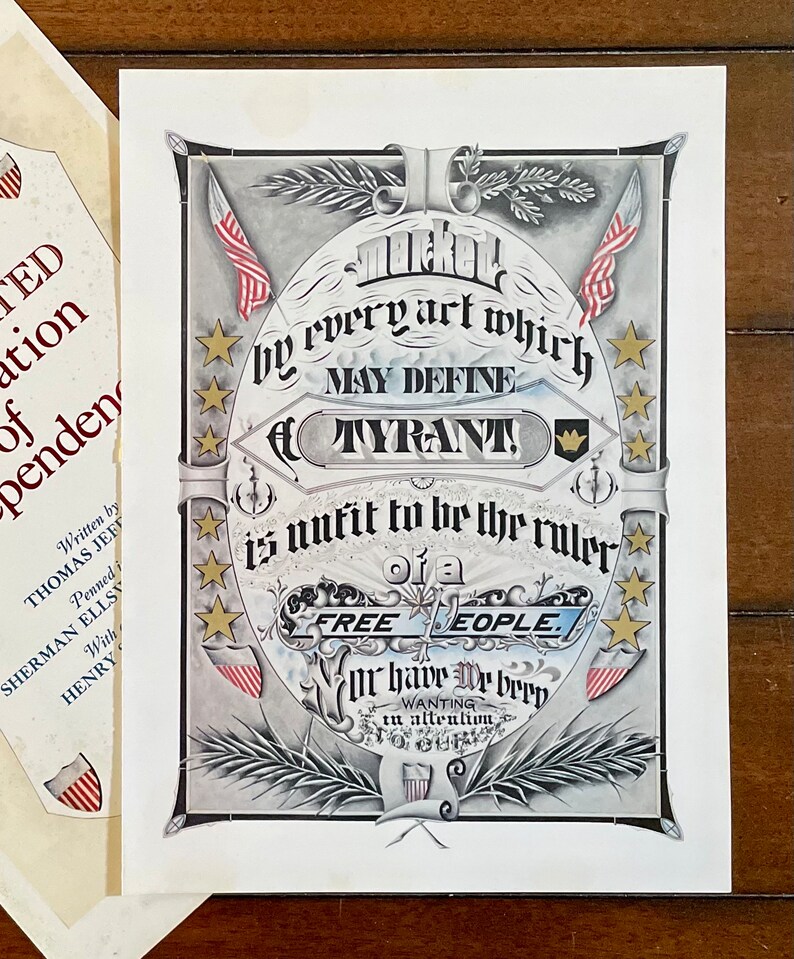 TED
ation
of
pendenc
Written by
THOMAS JEF
Penned i
SHERMAN ELLSW
With
HENRY S
marked
by every act which
MAY DEFINE
A TYRANT,
is unfit to be the ruler
of a
FREE PEOPLE.
Nor have We been
WANTING
in attention
TO OUR